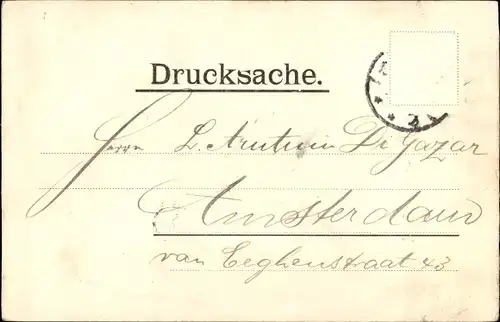 Drucksache.
Herrn L. De Gazar
Amsterdam
van Eeghenstraat 43